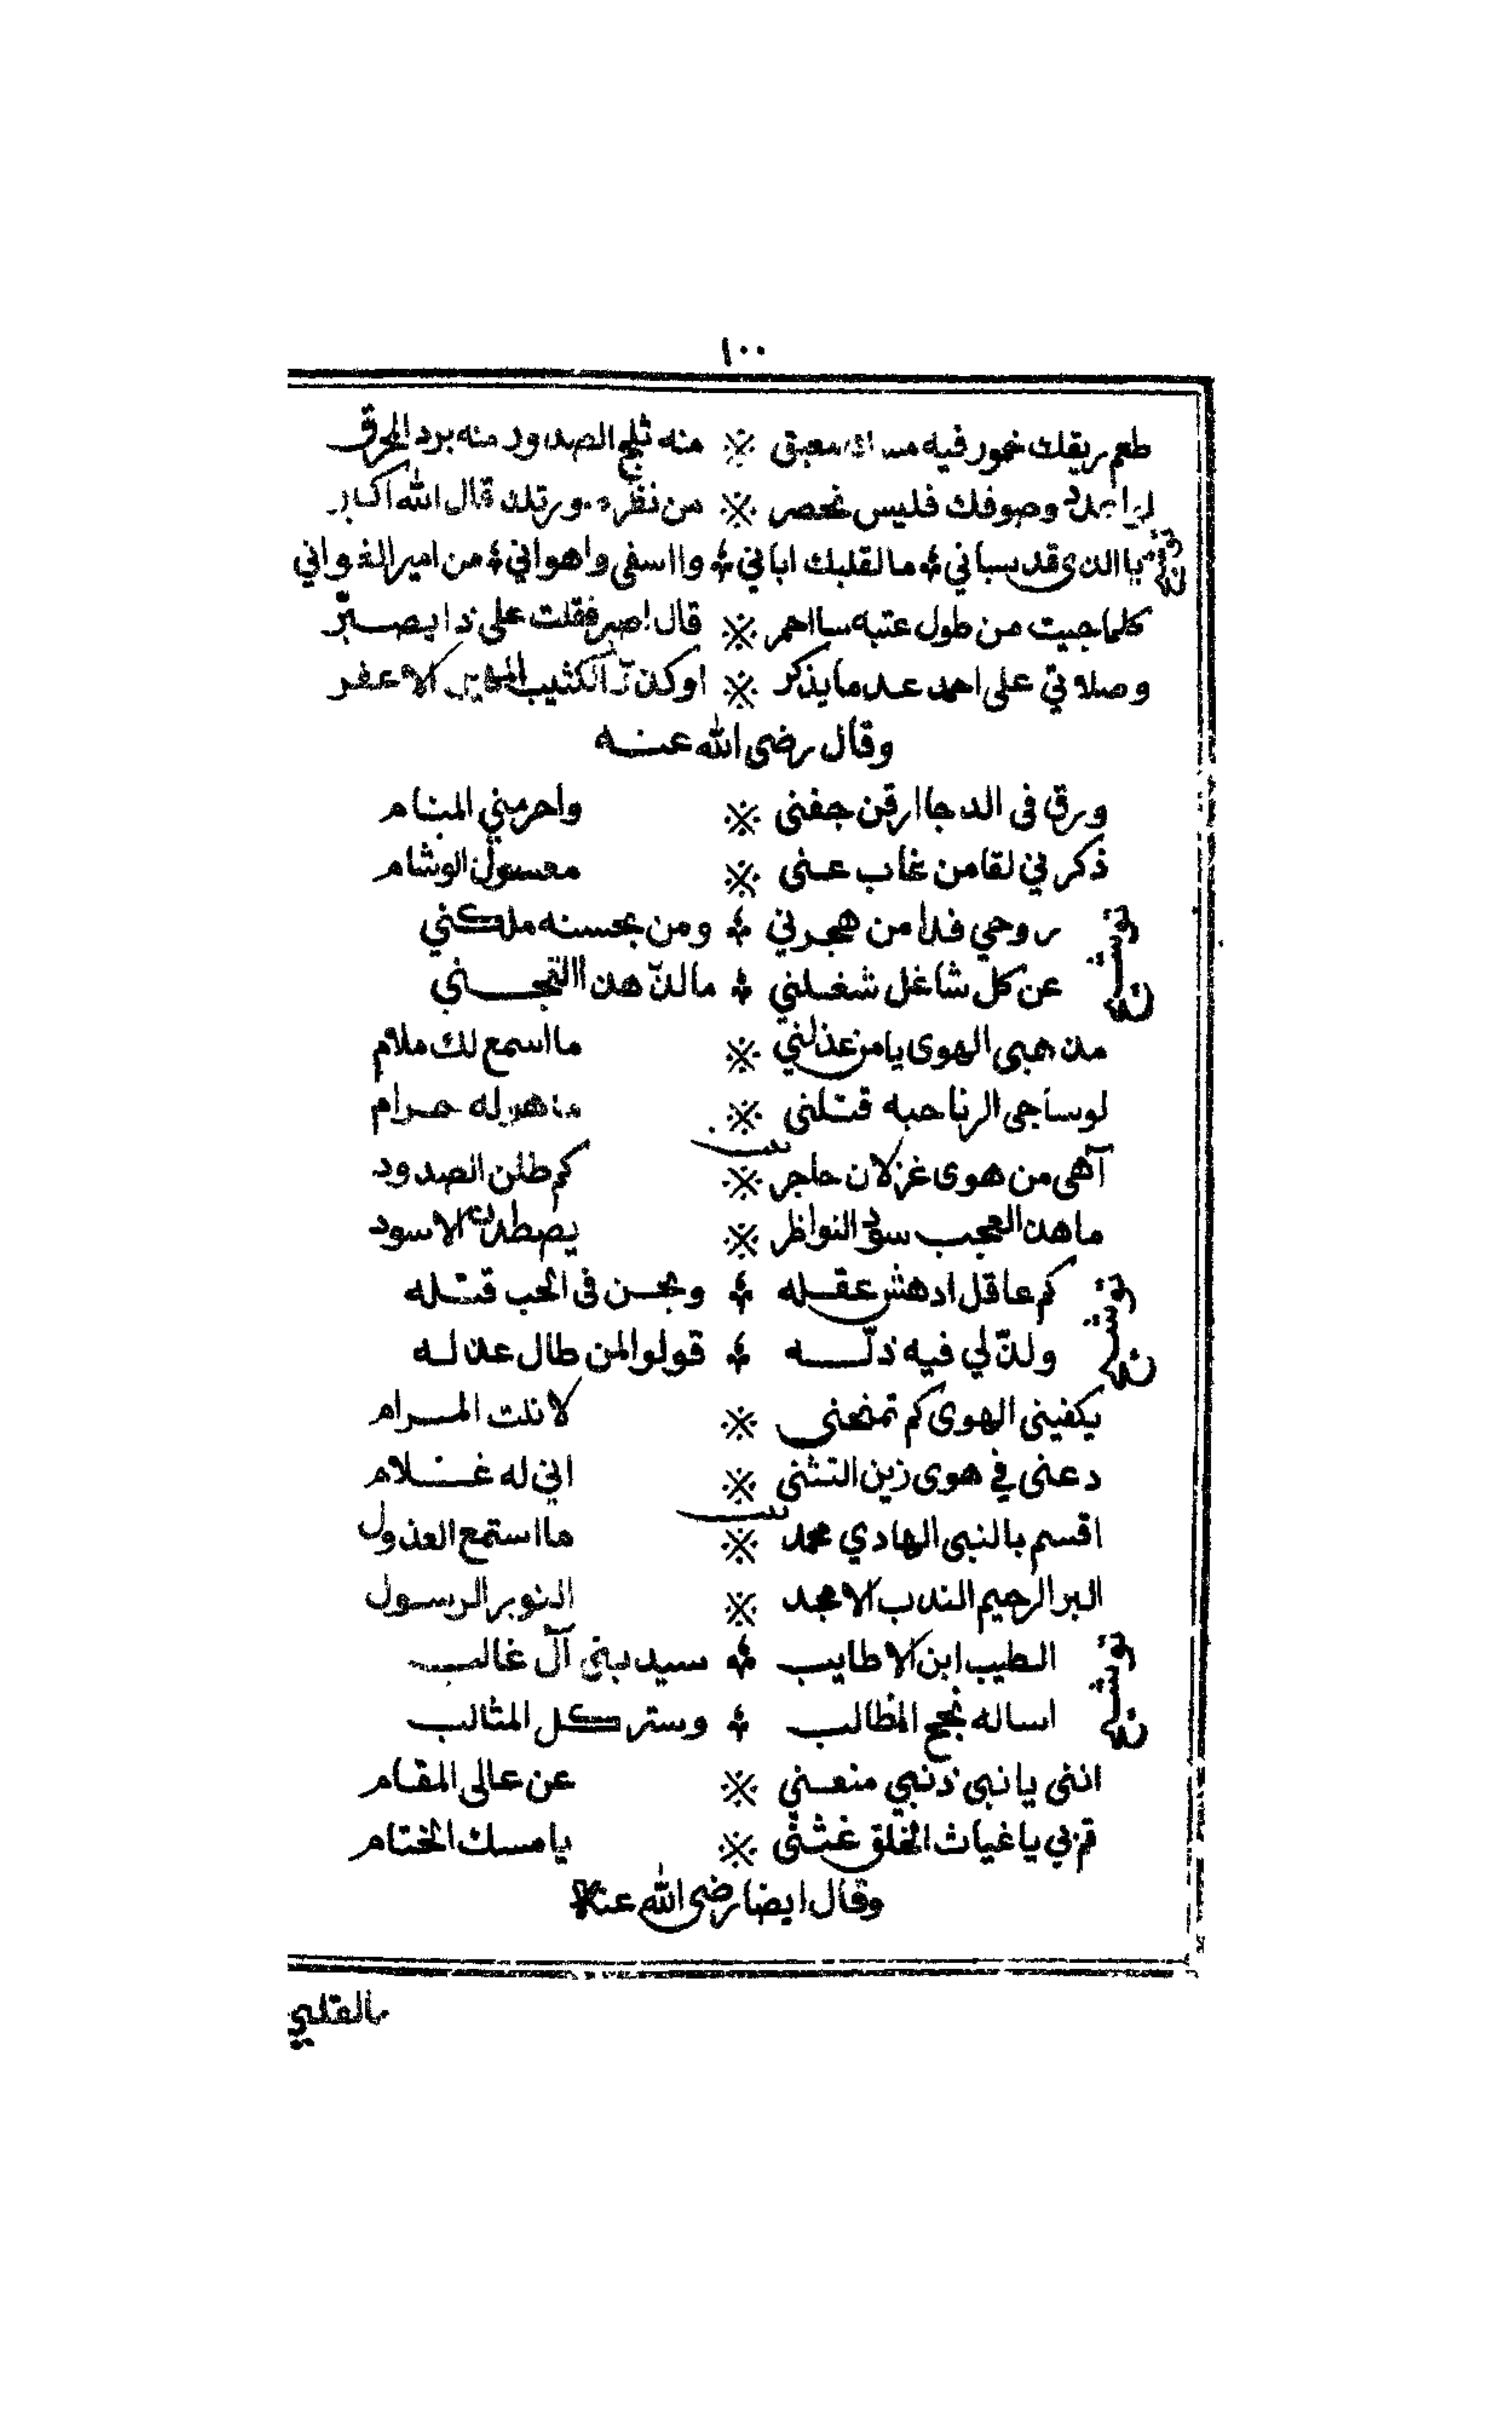 ١٠٠
طعم ريقك خمور فيه معبق ※ منه ثلج الصدور منه برد الحرق
وصوفك فليس نحصر ※ من نظره قال الله اكبر
توشيح يا الذى قد سباني ؞ ما لقلبك اباني ؞ وا اسفى واهواني ؞ من امير الغواني
كلما جيت من طول عتبه سا احمر ※ قال اصبر فقلت على ذا يصبّر
وصلاتي على احمد عد ما يذكر ※ الكثيب الاعفر
وقال رضى الله عنه
ورق فى الدجا ارقن جفنى ※ واحرمني المنام
ذكرني لقا من غاب عنى ※ معسول الوشام
توشيح روحي فدا من هجرني ؞ ومن بحسنه ملكني
عن كل شاغل شغلني ؞ مالذّ هذا التجني
مذهبى الهوى يا من عذلني ※ ما اسمع لك ملام
لوساجى الرنا حبه قتلنى ※ له حرام
بيت
آهى من هوى غزلان حاجر ※ كم طلن الصدود
ما هذا العجب سود النواظر ※ يصطدن الاسود
توشيح كم عاقل ادهش عقله ؞ ويحسن فى الحب قتله
ولذّ لي فيه ذلّه ؞ قولوا لمن طال عذله
يكفينى الهوى كم تمنعنى ※ لا نلت المرام
دعنى في هوى زين التثنى ※ اني له غلام
بيت
اقسم بالنبى الهادي محمد ※ ما استمع العذول
البر الرحيم الندب الامجد ※ النور الرسول
توشيح الطيب ابن الاطايب ؞ سيد بنى آل غالب
اساله نجح المطالب ؞ وستر كل المثالب
اننى يا نبى ذنبي منعني ※ عن عالى المقام
قم بي يا غياث الخلق غثنى ※ يا مسك الختام
وقال ايضا رضى الله عنه
يالقلبي